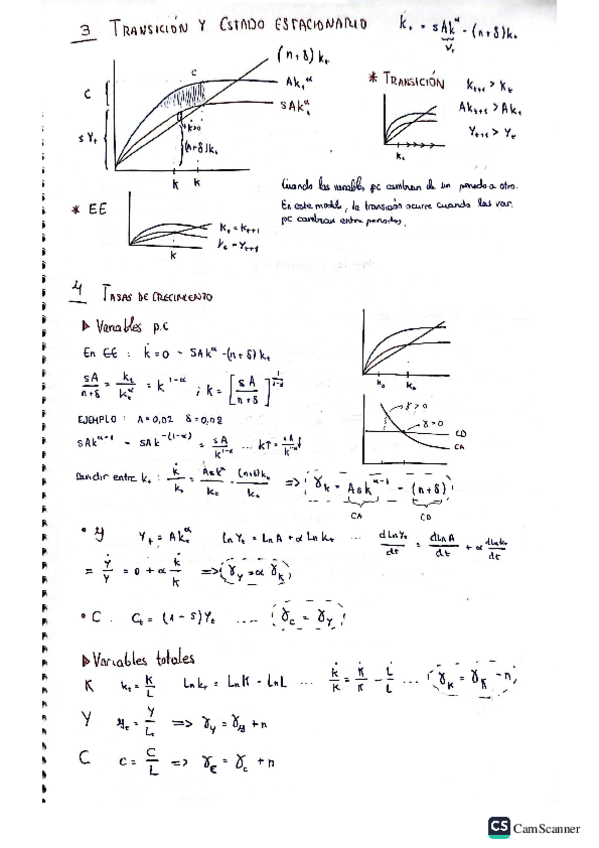 3 TRANSICIÓN Y ESTADO ESTACIONARIO k̇ₜ = sAkᵅ - (n+δ)kₜ
Yₜ
(n+δ)kₜ
c
Akₜᵅ
sAkₜᵅ
C
sYₜ
k̇>0
(n+δ)kₜ
k k
* TRANSICIÓN
kₜ₊₁ > kₜ
Akₜ₊₁ > Akₜ
Yₜ₊₁ > Yₜ
kₜ
Cuando las variables pc cambian de un periodo a otro.
En este modelo, la transición ocurre cuando las var.
pc cambian entre periodos.
* EE
kₜ = kₜ₊₁
= Yₜ₊₁
k
4 TASAS DE CRECIMIENTO
▷ Variables p.c
En EE : k̇ = 0 = sAkᵅ - (n+δ)kₜ
sA/(n+δ) = kₜ/kₜᵅ = k¹⁻ᵅ ; k = [sA/(n+δ)]^(1/(1-α))
EJEMPLO : A = 0,02 δ = 0,08
sAkᵅ⁻¹ = sAk⁻⁽¹⁻ᵅ⁾ = sA/k¹⁻ᵅ ... k↑ = sA/k¹⁻ᵅ ↓
kₒ kₒ
γ > 0
γ = 0
CD
CA
entre kₜ : k̇/kₜ = Askᵅ/kₜ - (n+δ)kₜ/kₜ => γₖ = Askᵅ⁻¹ - (n+δ)
CA CD
• y Yₜ = Akₜᵅ lnYₜ = lnA + α lnkₜ ... dlnYₜ/dt = dlnA/dt + α dlnkₜ/dt
= Ẏ/Y = 0 + α k̇/k => γ_Y = α γₖ
• C. Cₜ = (1 - s)Yₜ .... γ_C = γ_Y
▷ Variables totales
K kₜ = K/L lnkₜ = lnK - lnL ... k̇/k = K̇/K - L̇/L ... γₖ = γ_K - n
Y yₜ = Y/Lₜ => γ_Y = γ_y + n
C c = C/L => γ_C = γ_c + n
CS CamScanner